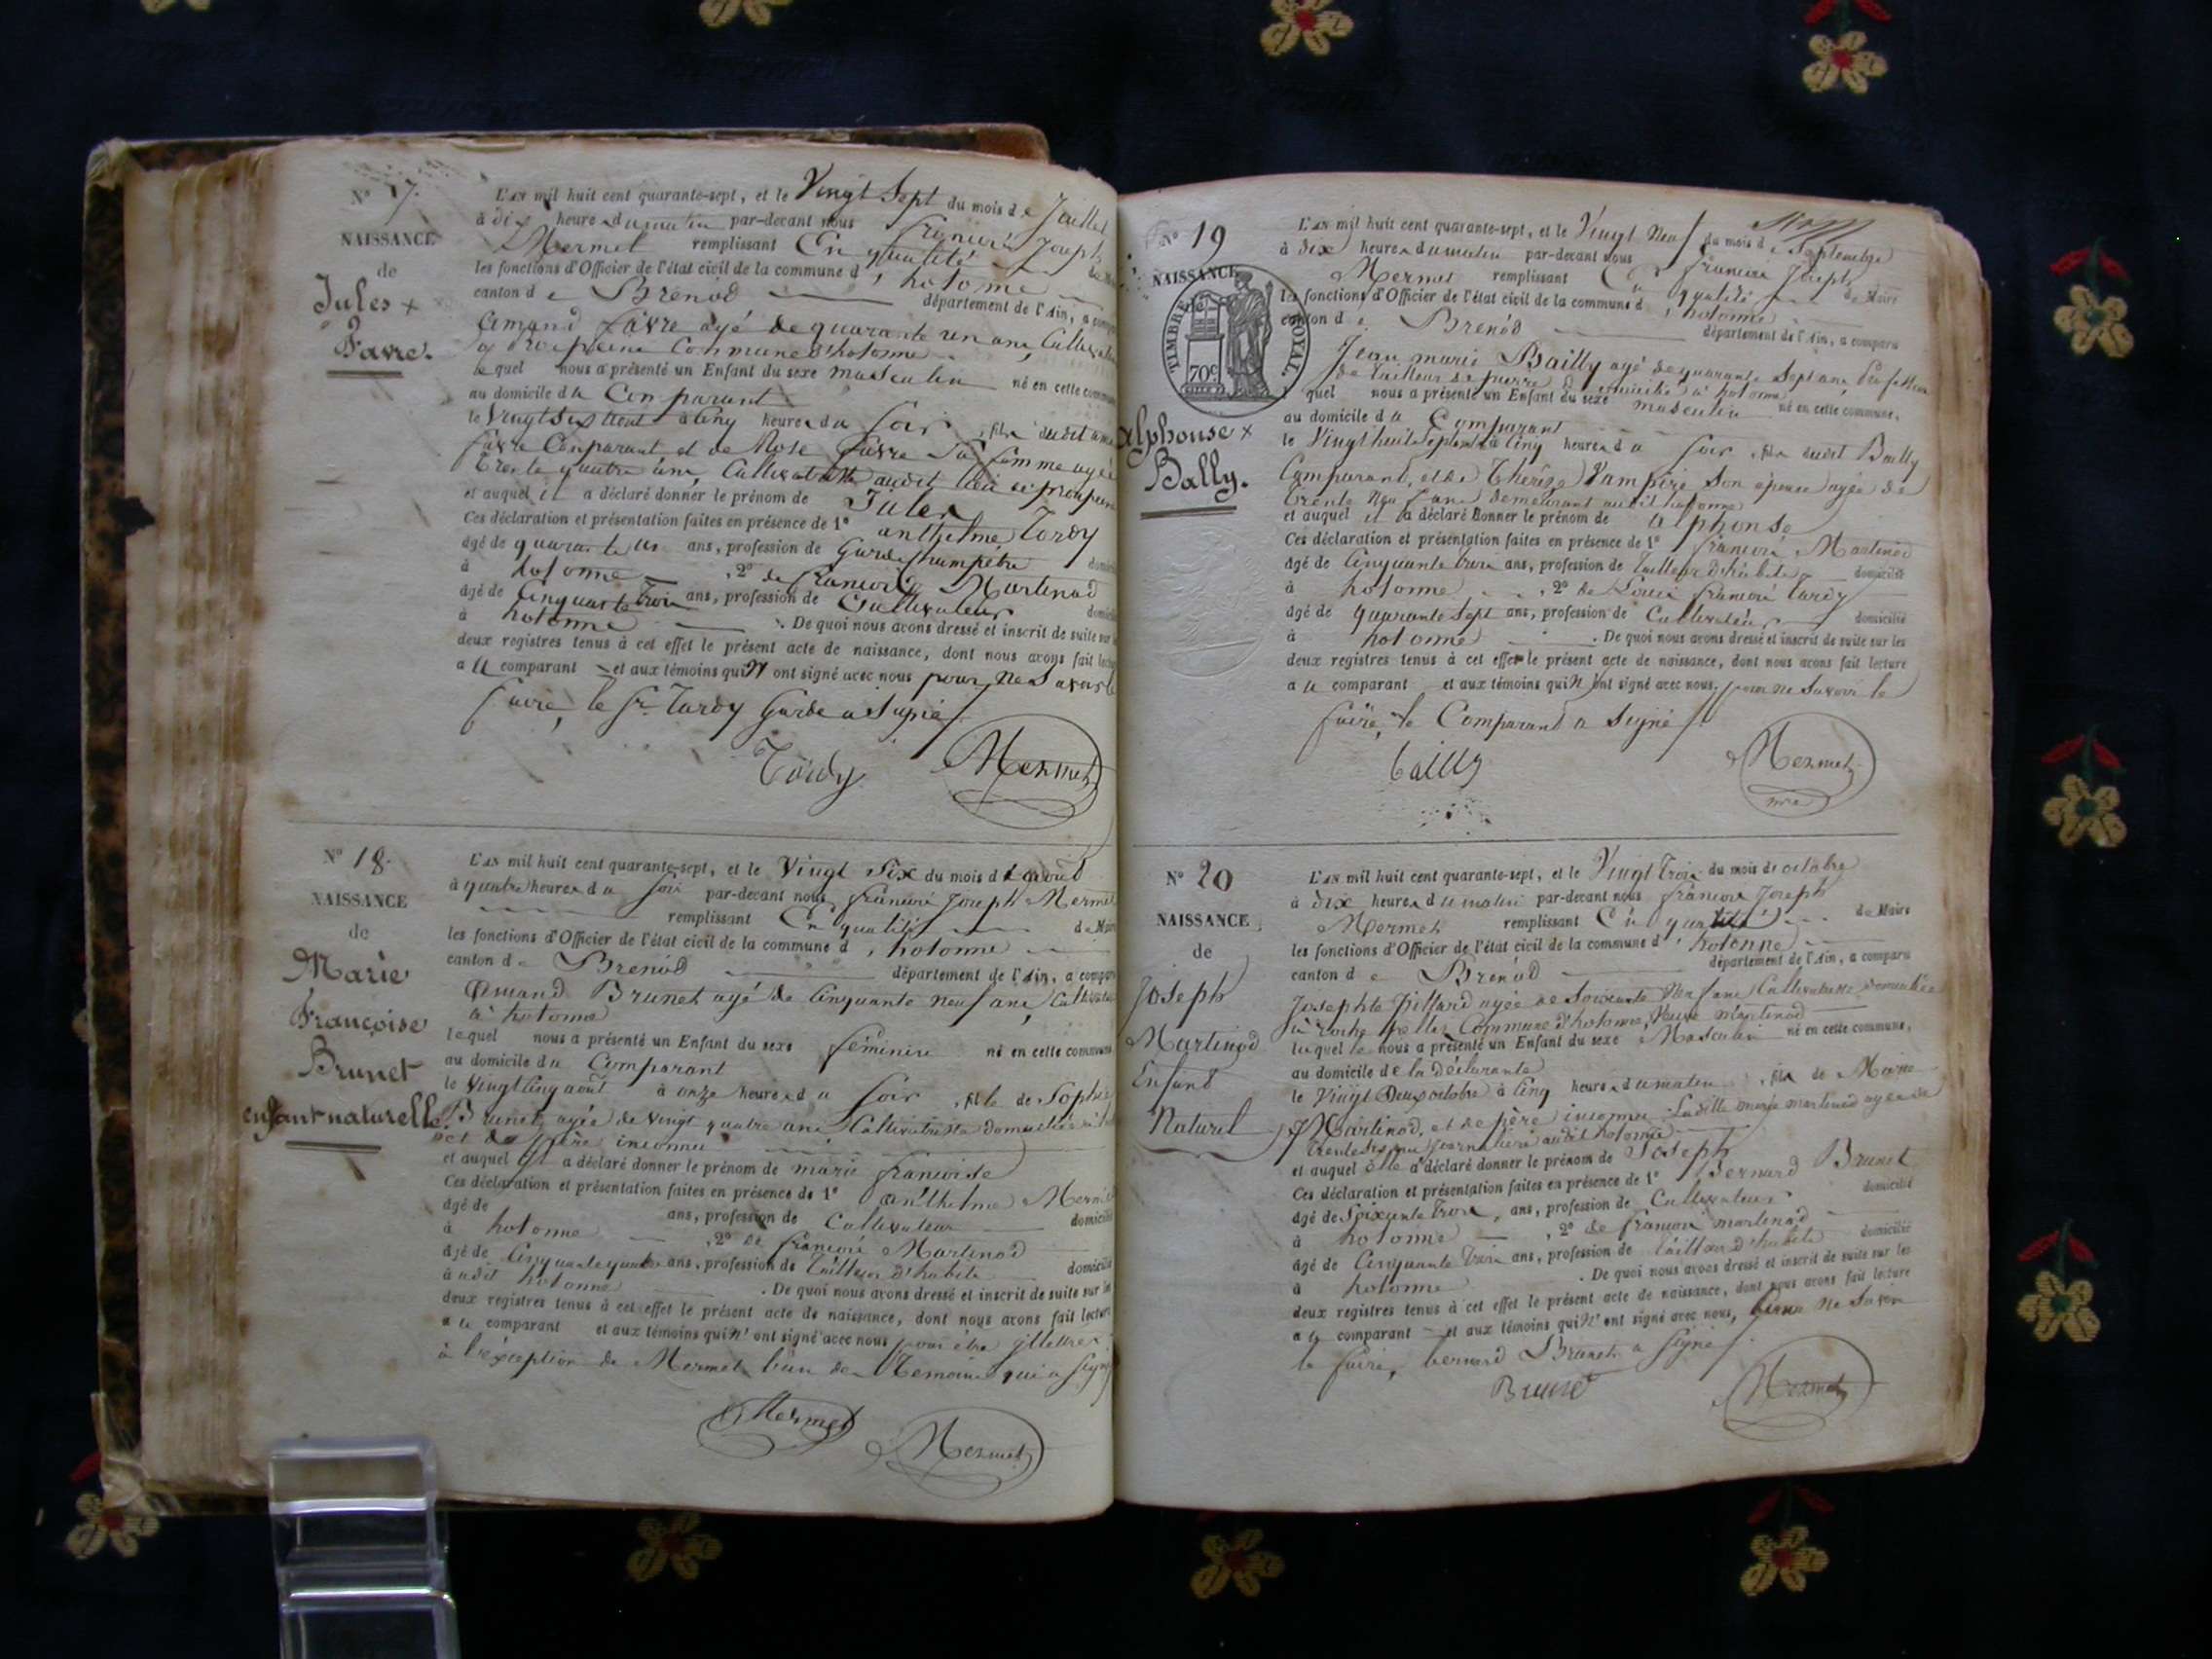 N° 17.
NAISSANCE
de
Jules +
Favre.
L'AN mil huit cent quarante-sept, et le Vingt Sept du mois de Juillet
à dix heures du matin par-devant nous françois Joseph
Mermet remplissant En qualité de Maire
les fonctions d'Officier de l'état civil de la commune d' hotonne
canton de Brénod département de l'Ain, a comparu
Amand favre agé de quarante un ans, Cultivateur
Commune d'hotonne
lequel nous a présenté un Enfant du sexe masculin né en cette commune
au domicile du Comparant
le Vingt Six à Cinq heures du soir, fils dudit
favre Comparant et de Rose favre Sa femme agée
trente quatre ans, Cultivatrice audit lieu
et auquel il a déclaré donner le prénom de Jules
Ces déclaration et présentation faites en présence de 1° anthelme tardy
âgé de ans, profession de Garde champêtre
à hotonne, 2° de françois Martinod
âgé de Cinquante trois ans, profession de Cultivateur
à hotonne. De quoi nous avons dressé et inscrit de suite sur
deux registres tenus à cet effet le présent acte de naissance, dont nous avons fait lecture
au comparant et aux témoins qui n' ont signé avec nous pour ne Savoir le
faire, le Sr. tardy Garde a Signé
Tardy Mermet
N° 18.
NAISSANCE
de
Marie
Françoise
Brunet
enfant naturelle.
L'AN mil huit cent quarante-sept, et le Vingt Six du mois d'août
à quatre heures du soir par-devant nous françois Joseph Mermet
remplissant En qualité de Maire
les fonctions d'Officier de l'état civil de la commune d' hotonne
canton de Brénod département de l'Ain, a comparu
Amand Brunet agé de Cinquante neuf ans, Cultivateur
à hotonne
lequel nous a présenté un Enfant du sexe féminin né en cette commune
au domicile du Comparant
le Vingt Cinq août à onze heures du soir, fille de Sophie
Brunet, agée de vingt quatre ans Cultivatrice domiciliée
et de père inconnu
et auquel il a déclaré donner le prénom de marie françoise
Ces déclaration et présentation faites en présence de 1° anthelme Mermet
âgé de ans, profession de Cultivateur domicilié
à hotonne, 2° de françois Martinod
âgé de Cinquante quatre ans, profession de tailleur d'habits domicilié
audit hotonne. De quoi nous avons dressé et inscrit de suite sur les
deux registres tenus à cet effet le présent acte de naissance, dont nous avons fait lecture
au comparant et aux témoins qui n' ont signé avec nous pour être illettrés
à l'exception de Mermet l'un des temoins qui a signé
Mermet Mermet
N° 19
NAISSANCE
TIMBRE ROYAL.
70c
alphonse +
Bally.
L'AN mil huit cent quarante-sept, et le Vingt Neuf du mois de Septembre
à dix heures du matin par-devant nous françois Joseph
Mermet remplissant En qualité de Maire
les fonctions d'Officier de l'état civil de la commune d' hotonne
canton de Brénod département de l'Ain, a comparu
Jean marie Bailly agé de quarante Sept ans, Profession
de tailleur de pierre domicilié à hotonne
quel nous a présenté un Enfant du sexe masculin né en cette commune,
au domicile du Comparant
le Vingt huit Septembre à Cinq heures du soir, fils dudit Bailly
Comparant, et de Thérèse Vampire Son épouse agée de
trente Neuf ans demeurant audit hotonne
et auquel il a déclaré donner le prénom de alphonse
Ces déclaration et présentation faites en présence de 1° françois Martinod
âgé de Cinquante trois ans, profession de tailleur d'habits domicilié
à hotonne, 2° de Louis françois tardy
âgé de quarante Sept ans, profession de Cultivateur domicilié
à hotonne. De quoi nous avons dressé et inscrit de suite sur les
deux registres tenus à cet effet le présent acte de naissance, dont nous avons fait lecture
au comparant et aux témoins qui n' ont signé avec nous, pour ne Savoir le
faire, le Comparant a Signé
bailly Mermet
N° 20
NAISSANCE
de
Joseph
Martinod
Enfant
Naturel
L'AN mil huit cent quarante-sept, et le Vingt trois du mois de octobre
à dix heures du matin par-devant nous françois Joseph
Mermet remplissant En qualité de Maire
les fonctions d'Officier de l'état civil de la commune d' hotonne
canton de Brénod département de l'Ain, a comparu
Josephte agée de Soixante Neuf ans Cultivatrice domiciliée
à Commune d'hotonne, Veuve Martinod
laquelle nous a présenté un Enfant du sexe Masculin né en cette commune,
au domicile de la déclarante
le Vingt Deux octobre à Cinq heures du matin, fils de Marie
Martinod, et de père inconnu Ladite marie martinod agée de
journalière audit hotonne
et auquel elle a déclaré donner le prénom de Joseph
Ces déclaration et présentation faites en présence de 1° Bernard Brunet
âgé de Soixante trois, ans, profession de Cultivateur domicilié
à hotonne, 2° de françois martinod
âgé de Cinquante trois ans, profession de tailleur d'habits domicilié
à hotonne. De quoi nous avons dressé et inscrit de suite sur les
deux registres tenus à cet effet le présent acte de naissance, dont nous avons fait lecture
au comparant et aux témoins qui n' ont signé avec nous, pour ne Savoir
le faire, bernard Brunet a signé
Brunet Mermet